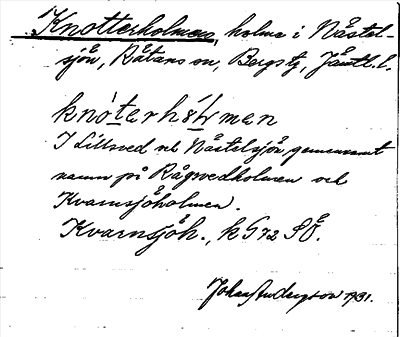 Knotterholmen, holme i Nästel-
sjön, Rätans sn, Bergs tg, Jämtl. l.
knòterhɷ́ļmen
I Lillsved vid Nästelsjön gemensamt
namn på Rågsvedholmen och
Kvarnsjöholmen.
Kvarnsjöh., k G 72 SÖ.
Johan Anderson 1931.